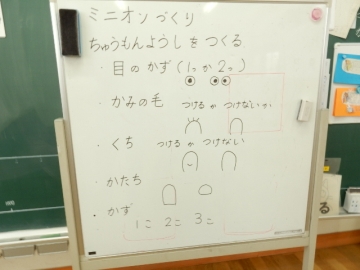 ミニオンづくり
ちゅうもんようしをつくる
・目のかず(1こか2こ)
・かみの毛 つけるかつけないか
・くち つけるかつけない
・かたち
・かず
1こ 2こ 3こ